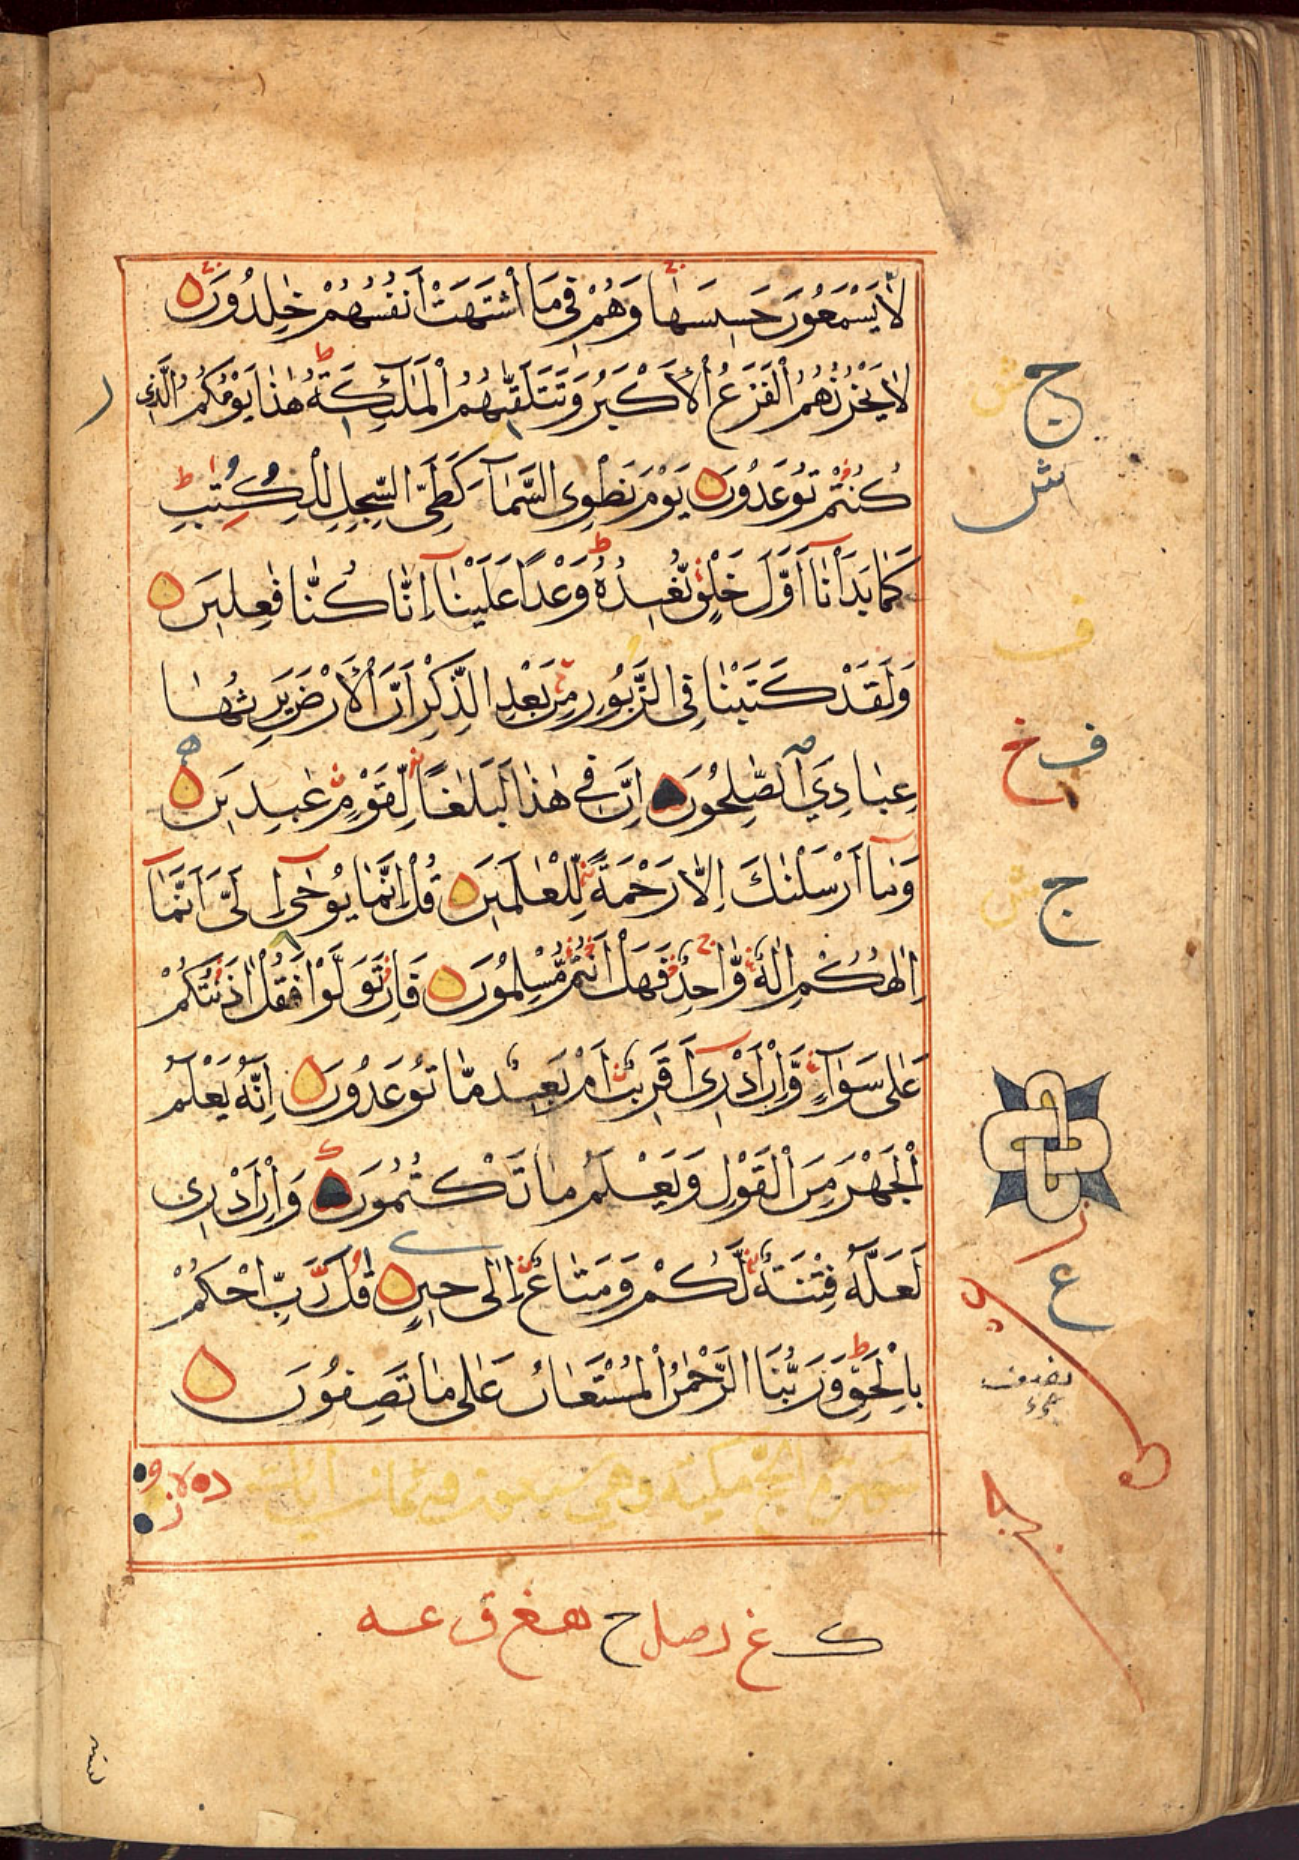 لَا يَسْمَعُونَ حَسِيسَهَا وَهُمْ فِي مَا اشْتَهَتْ أَنْفُسُهُمْ خٰلِدُونَ
لَا يَحْزُنُهُمُ الْفَزَعُ الْأَكْبَرُ وَتَتَلَقّٰىهُمُ الْمَلٰٓئِكَةُ هٰذَا يَوْمُكُمُ الَّذِي
كُنْتُمْ تُوعَدُونَ يَوْمَ نَطْوِي السَّمَآءَ كَطَيِّ السِّجِلِّ لِلْكُتُبِ
كَمَا بَدَأْنَآ أَوَّلَ خَلْقٍ نُّعِيدُهُ وَعْدًا عَلَيْنَآ إِنَّا كُنَّا فٰعِلِينَ
وَلَقَدْ كَتَبْنَا فِي الزَّبُورِ مِنْ بَعْدِ الذِّكْرِ أَنَّ الْأَرْضَ يَرِثُهَا
عِبَادِيَ الصّٰلِحُونَ إِنَّ فِي هٰذَا لَبَلٰغًا لِّقَوْمٍ عٰبِدِينَ
وَمَآ أَرْسَلْنٰكَ إِلَّا رَحْمَةً لِّلْعٰلَمِينَ قُلْ إِنَّمَا يُوحٰىٓ إِلَيَّ أَنَّمَآ
إِلٰهُكُمْ إِلٰهٌ وَّاحِدٌ فَهَلْ أَنْتُمْ مُّسْلِمُونَ فَإِنْ تَوَلَّوْا فَقُلْ اٰذَنْتُكُمْ
عَلٰى سَوَآءٍ وَّإِنْ أَدْرِيٓ أَقَرِيبٌ أَمْ بَعِيدٌ مَّا تُوعَدُونَ إِنَّهُ يَعْلَمُ
الْجَهْرَ مِنَ الْقَوْلِ وَيَعْلَمُ مَا تَكْتُمُونَ وَإِنْ أَدْرِي
لَعَلَّهُ فِتْنَةٌ لَّكُمْ وَمَتَاعٌ إِلٰى حِينٍ قُلْ رَّبِّ احْكُمْ
بِالْحَقِّ وَرَبُّنَا الرَّحْمٰنُ الْمُسْتَعَانُ عَلٰى مَا تَصِفُونَ
سورة الحج مكية وهي سبعون وثمان آيات
ج ش
ش
ف
ف خ
ج ش
ع
ک غ ر صل ح هغ ق عه